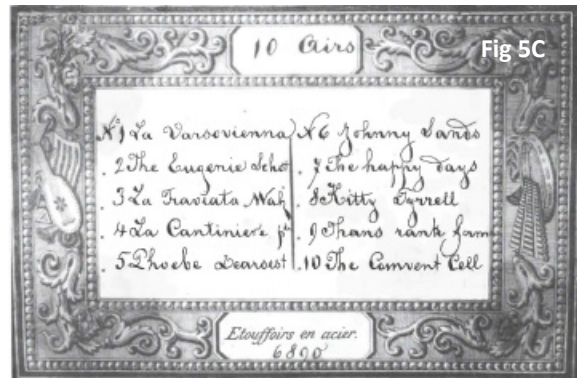 10 Airs
Fig 5C
No 1 La Varsovienna
. 2 The Eugenie Schot
. 3 La Traviata Walz
. 4 La Cantiniere
. 5 Phoebe Dearest
No 6 Johnny Sands
. 7 The happy days
. 8 Kitty Tyrrell
. 9 Thans rank form
. 10 The Comvent Cell
Etouffoirs en acier.
6800